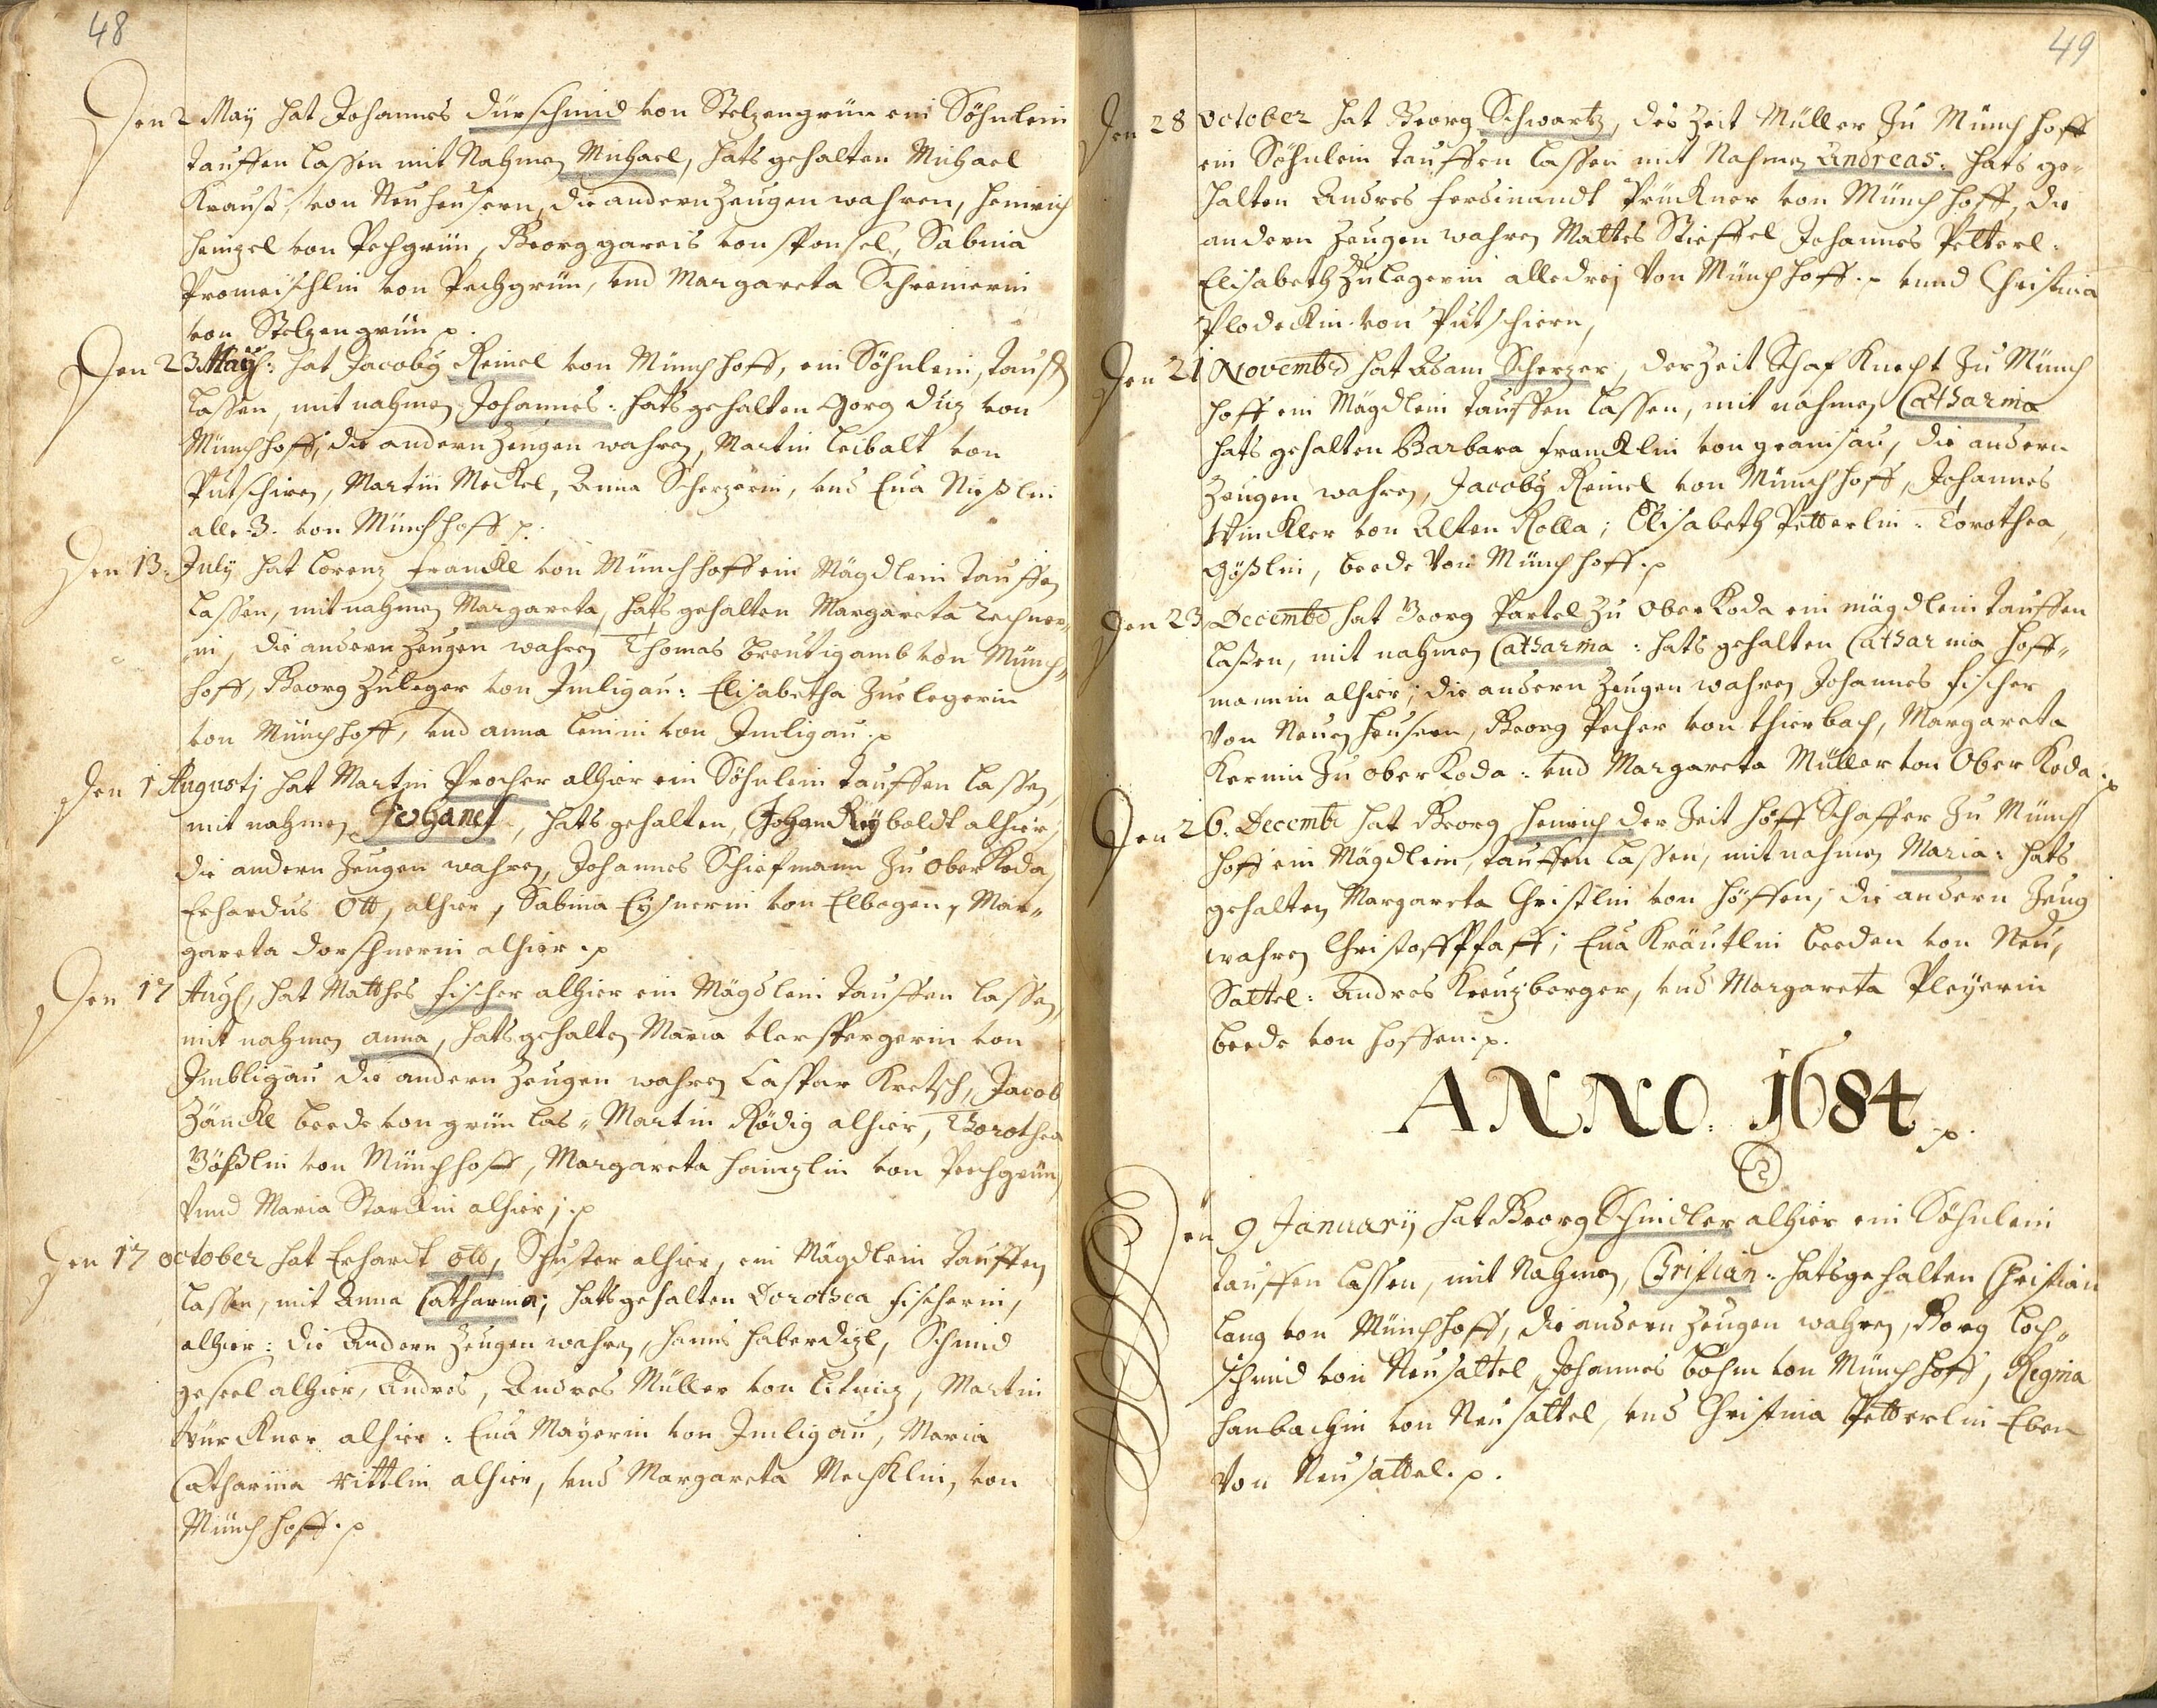 48
Den 2 Maÿ hat Johannes Dürschmid von Stelzengrün ein Söhnlein
tauffen lassen mit Nahmen Michael, hats gehalten Michael
Krauß, von Neuheusern, die andern Zeugen wahren, Heinrich
Heinzel von Pechgrün, Georg gareis von sponsel, Sabina
Promeischlin von Pechgrün, und Margareta Schreinerin
von Stelzengrün p.
Den 23 Maÿ: hat Jacobÿ Reinel von Münchhoff, ein Söhnlein, tauffen
lassen, mit nahmen Johannes: hats gehalten Görg Düz von
Münchhoff, die andern Zeugen wahren, Martin Leibalt von
Putschirn, Martin Meckel, Anna Scherzerin, und Eua Nießlin
alle 3. von Münchhoff p.
Den 13. Julÿ hat Lorenz Franckl von Münchhoff ein Mägdlein tauffen
lassen, mit nahmen Margareta, hats gehalten Margareta Zechner„
in, die andern Zeugen wahren Thomas Breutigamb von Münch„
hoff, Georg Zuleger von Imligau: Elisabetha Zuelegerin
von Münchhoff, und anna Leinin von Imligau p
Den 1 Augustj hat Martin Procher alhier ein Söhnlein tauffen lassen,
mit nahmen Johanes, hats gehalten, Johan Reÿboldt alhier,
die andern Zeugen wahren, Johannes Schiefmann zu Ober Koda,
Erhardus Ott, alhier, Sabina Eÿsnerin von Elbogen, Mar„
gareta Dorschnerin alhier p
Den 17 Augl, hat Matthes Fischer alhier ein Mägdlein tauffen lassen,
mit nahmen anna, hats gehalten Maria Verspergerin von
Imbligau die andern Zeugen wahren Caspar Kretsch, Jacob
Zänckl beede von grün las„ Martin Rödig alhier, Dorothea
Gößlin von Münchhoff, Margareta Heinzlin von Pechgrün
Vnnd Maria Starckin alhier; p
Den 17 October hat Erhardt Ott, Schuster alhier, ein Mägdlein tauffen
lassen, mit Anna Catharina; hats gehalten Dorothea Fischerin,
alhier: die Andern Zeugen wahren, Hanns Haberdizl, Schmid
geseel alhier, Andres, Andres Müller von Litmiz, Martin
Würckner alhier: Eua Mayerin von Imligau, Maria
Catharina rittlin alhier, und Margareta Mechklin, von
Münchhoff. p
49
Den 28 October hat Georg Schwartz, des Zeit Müller zu Münchhoff
ein Söhnlein tauffen lassen mit Nahmen Andreas: hats ge„
halten Andres Ferdinandt Prückner von Münchhoff, die
andern Zeugen wahren Mattes Stieffel Johannes Petterl:
Elisabeth Zulegerin alledrej Von Münchhoff. p vnnd Christina
Plodeckin von Putschiern,
Den 21 Novembr hat Adam Scherzer, derzeit Schaf Knecht zu Münch
hoff ein Mägdlein tauffen lassen, mit nahmen Catharina
hats gehalten Barbara Francklin von granisau, die andern
Zeugen wahren, Jacobÿ Reinel von Münchhoff, Johannes
Winckler von Alten Rolla; Elisabeth Petterlin: Torothea
Gößlin, beede Von Münchhoff. p
Den 23 Decembr hat Georg Partel zu Ober Koda ein mägdlein tauffen
laßen, mit nahmen Catharina: hats gehalten Catharina Hoff„
mannin alhier; die andern Zeugen wahren Johannes Fischer
Von Neuenheusern, Georg Pecher von Thierbach, Margareta
Kernin zu Ober Koda: und Margareta Müller von Ober Koda: p
Den 26. Decembr hat Georg Heinrich der Zeit Hoff Schaffer zu Münch
hoff ein Mägdlein, tauffen lassen, mit nahmen Maria: hats
gehalten Margareta Christlin von Höffen; die andern Zeug
wahren Christoff Pfaff; Eua Kräutlin beeden von Neu,
Sattel: Andres Kreuzberger, und Margareta Pleÿerin
beede von Hoffen. p.
ANNO. 1684 p.
Den 9 Januarÿ hat Georg Schindler alhier ein Söhnlein
tauffen lassen, mit Nahmen, Christian: hats gehalten Christian
Lang von Münchhoff, die andern Zeugen wahren, Georg Loch„
schmid von Neusattel, Johannes Böhm von Münchhoff, Regina
Hanbachin von Neusattel, und Christina Petterlin Eben
Von Neusattel. p.